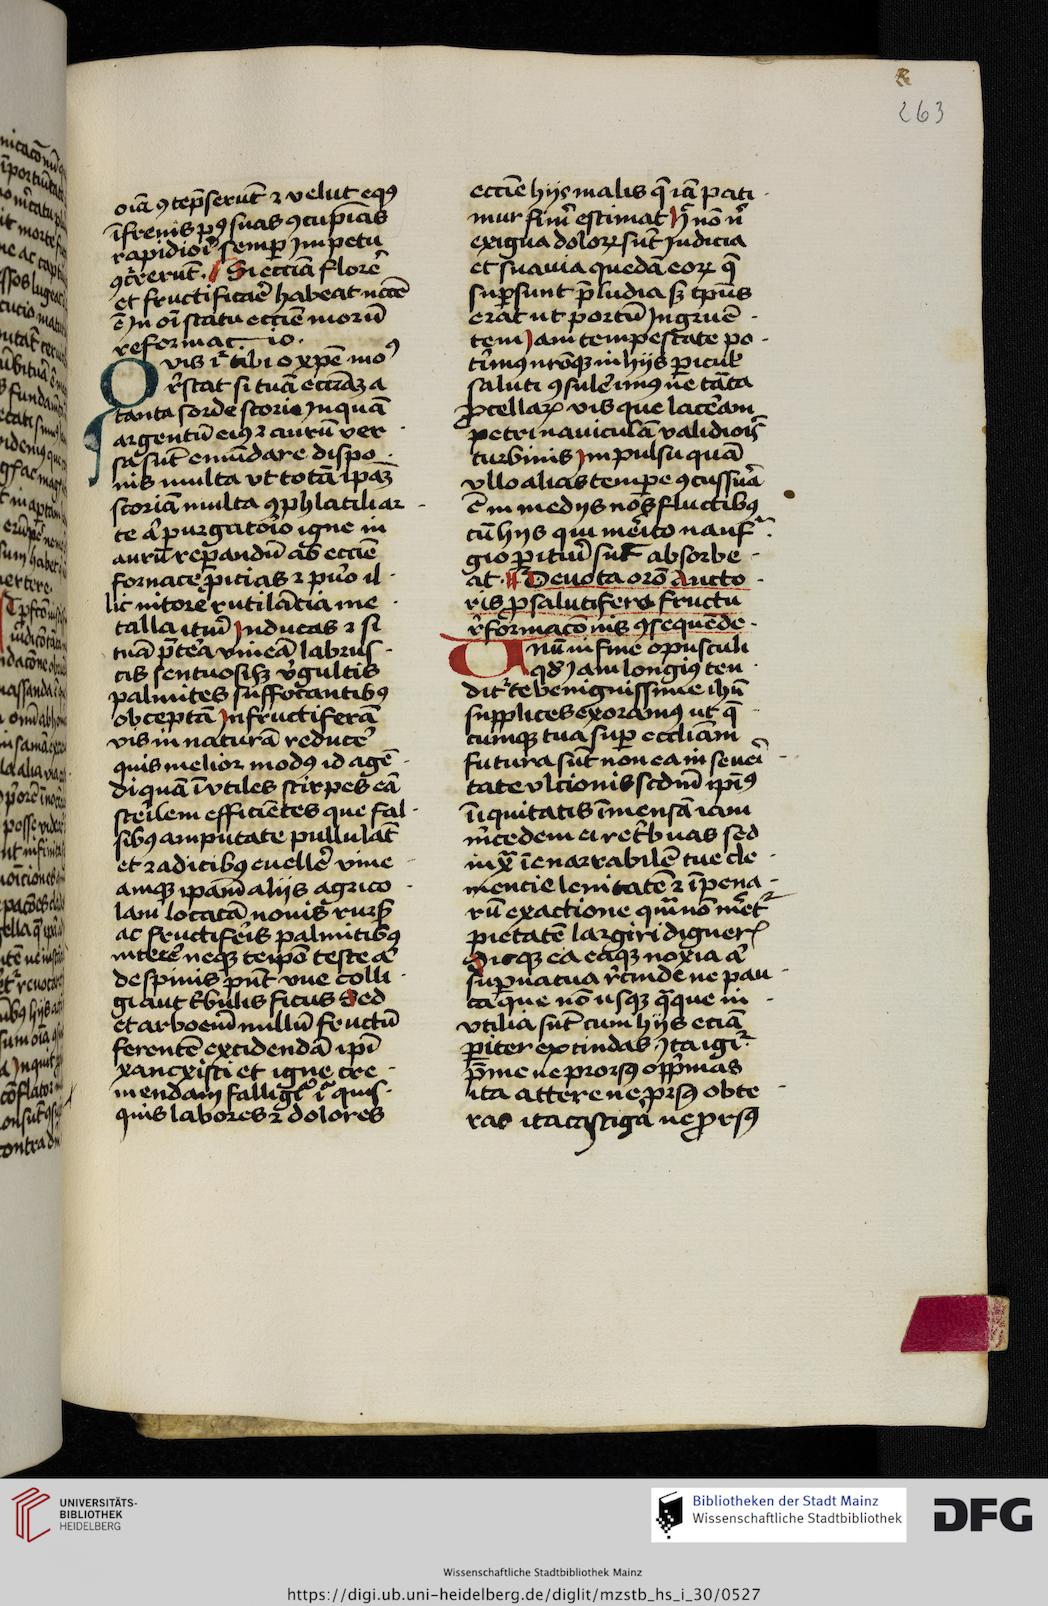 263
oīa ꝯtēpserūt ⁊ velut eqꝰ
īfrenis pꝰ suas ꝯcupīcias
rapidiori semper Impetu
ꝯcrerūt. Si eccīa florē
et fructificare habeat necēe
ē In oī statu eccīe morū
reformac̄io.
Ovis īr tibi o xpē moꝰ
r̄stat si tuā ecciāꝫ a
tanta sorde scorie Inquā
argentū eiꝰ ⁊ aurū ver
sa sūt emūdare dispo
nis multa vt totā ipaꝫ
scoriā multa ꝯphlatiliar
te a' purgatoīo igne in
aurū rep̄andū ab eccīe
fornace p̄icias ⁊ puro il
lic nitore rutilācia me
talla itum Inducas ⁊ si
tuā p̄tea vineā labrus
cis sentuosisqꝫ v̄gultis
palmites suffocantibꝰ
obceptā Infructiferā
vis in naturā reducē
quis melior modꝰ id agē
di quā īvtiles stirpes eā
sterilem efficiētes que fal
sibꝰ amputate pullulāt
et radicibꝰ euellē vine
amqꝫ ipam aliis agrico
lam locatā nouis rursꝰ
ac fructiferis palmitibꝰ
interē neqꝫ teipō teste a'
de spinis p̄nt vue colli
gi aut t̄bulis ficus Sed
et arborem nullū fructū
ferentē excidendā ipī
xanxisti et igne cre
mendam falligr̄ īr quis
quis labores ⁊ dolores
eccīe hijs malis q̄ iā pati
mur finir̄ estimat Hr̄ nō nr̄
exigua dolorꝝ sūt Judicia
et suauia quedā eorꝝ q̄
supersunt p̄ludia sꝫ tp̄us
erat ut portū Ingruē
tem Jam tempestate po
timꝰ nr̄oqꝫ in hijs pericul
saluti ꝯsulerimꝰ ne tāta
ꝓcellarꝝ vis que laceram
petri nauiculā validiorī
turbinis Impulsu quā
vllo alias tempe ꝯcussura
ē in medijs nos fluctibꝰ
cū hijs qui merito naufra
gio perituri sūt absorbe
at. Deuota orō Aucto
ris ꝓ salutifero fructu
r̄formac̄onis ꝯsequēde
Unū in fine opusculi
qd̄ Jam longiꝰ ten
ditr̄ te benignissime ihū
supplices exoramꝰ ut q̄
cumqꝫ tua super eccliam
futura sūt non ea in seueri
tate vlcionis scdm ipīꝰ
īiquitatis īmensā iam
m̄cedem ei ret̄buas sed
iuxa īenarrabilē tue cle
mencie lenitatē ⁊ īpena
rū exactione qm̄ nō meretr̄
pietatē largiri digneris
Disqꝫ ea eaqꝫ noxia a'
superuacua r̄cinde ne pau
ca que nō usqꝫ quaque in
vtilia sūt cum hijs eciā
pariter exscindas Ita igr̄
p̄me ne prorsꝰ opprimas
ita attere ne prorsꝰ obte
ras ita castiga ne prorsꝰ
UNIVERSITÄTS-
BIBLIOTHEK
HEIDELBERG
Bibliotheken der Stadt Mainz
Wissenschaftliche Stadtbibliothek
DFG
Wissenschaftliche Stadtbibliothek Mainz
https://digi.ub.uni-heidelberg.de/diglit/mzstb_hs_i_30/0527